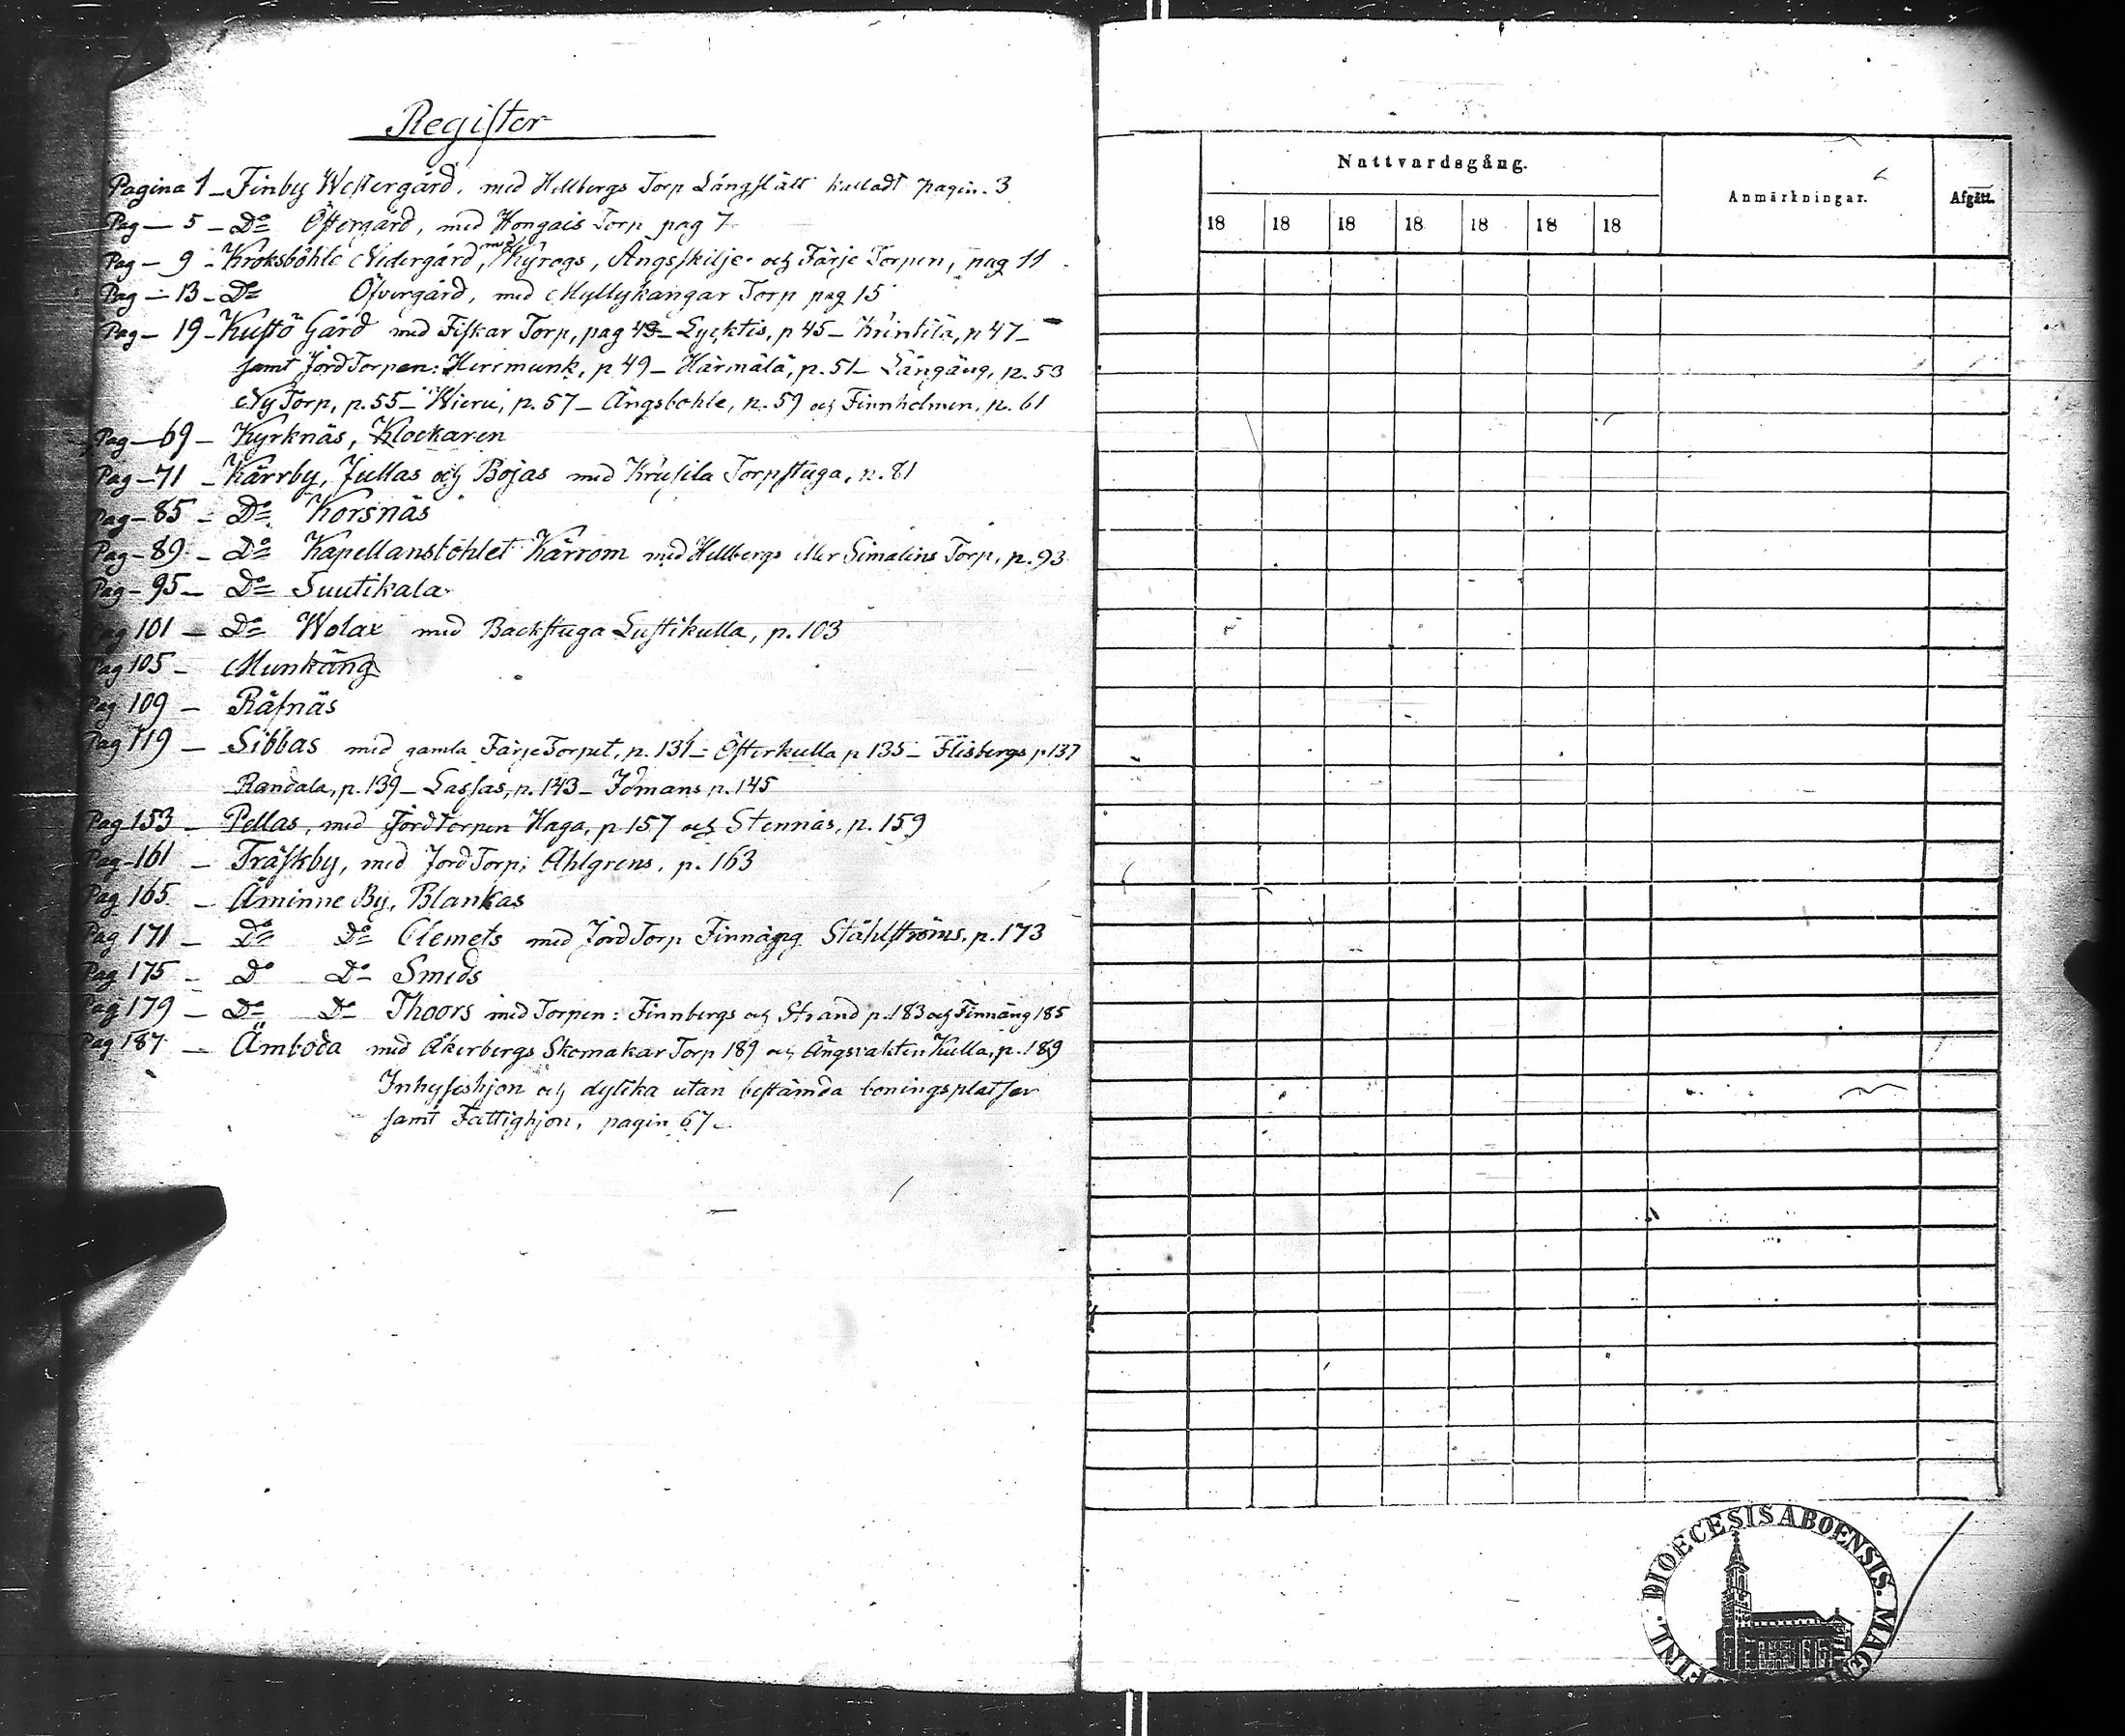 Register
Pagina 1 - Finby Westergård, med Hellbergs Torp Långslätt kalladt pagin. 3
Pag - 5 - Do Östergård, med Kongais Torp pag 7
Pag - 9 - Kroksböhle Nedergård, med Kyrogs, Ängsskilje- och Färje Torpen, pag 11
Pag - 13 - Do Öfvergård, med Myllykangar Torp pag 15
Pag - 19 - Kustö Gård med Fiskar Torp, pag 43 - Lycktis, p 45 - Krintilä, p 47 -
samt Jord Torpen: Herrmunk, p 49 - Härmälä, p. 51 - Långäng, p. 53
Ny Torp, p. 55 - Wieru, p. 57 - Ängsbohle, p. 59 och Finnholmen, p. 61
Pag - 69 - Kyrknäs, Klockaren
Pag - 71 - Kärrby, Jullas och Bojas med Krusila Torpstuga, p. 81
Pag - 85 - Do Korsnäs
Pag - 89 - Do Kapellansbohlet Kärrom med Hellbergs eller Simalins Torp, p. 93
Pag - 95 - Do Suutikala
Pag 101 - Do Wolax med Backstuga Lustikulla, p. 103
Pag 105 - Munkäng
Pag 109 - Räfnäs
Pag 119 - Sibbas med gamla Färje Torpet, p. 131 - Österkulla p 135 - Flisbergs p 137
Randala, p. 139 - Lassas, p. 143 - Idmans p. 145
Pag 153 - Pellas, med Jordtorpen Haga, p 157 och Stennäs, p. 159
Pag - 161 - Träskby, med Jord Torp: Ahlgrens, p. 163
Pag 165 - Åminne By, Blankas
Pag 171 - Do Do Clemets med Jord Torp Finnäng Ståhlströms, p. 173
Pag 175 - Do Do Smeds
Pag 179 - Do Do Thoors med Torpen: Finnbergs och Strand p. 183 och Finnäng 185
Pag 187 - Ämboda med Åkerbergs Skomakar Torp 189 och Ängsvakten Kulla, p. 189
Inhyseshjon och dylika utan bestämda boningsplatser
samt Fattighjon, pagin 67
Nattvardsgång.
Anmärkningar.
Afgått.
18 18 18 18 18 18 18
FINL. DIOECESIS ABOENSIS. MAG